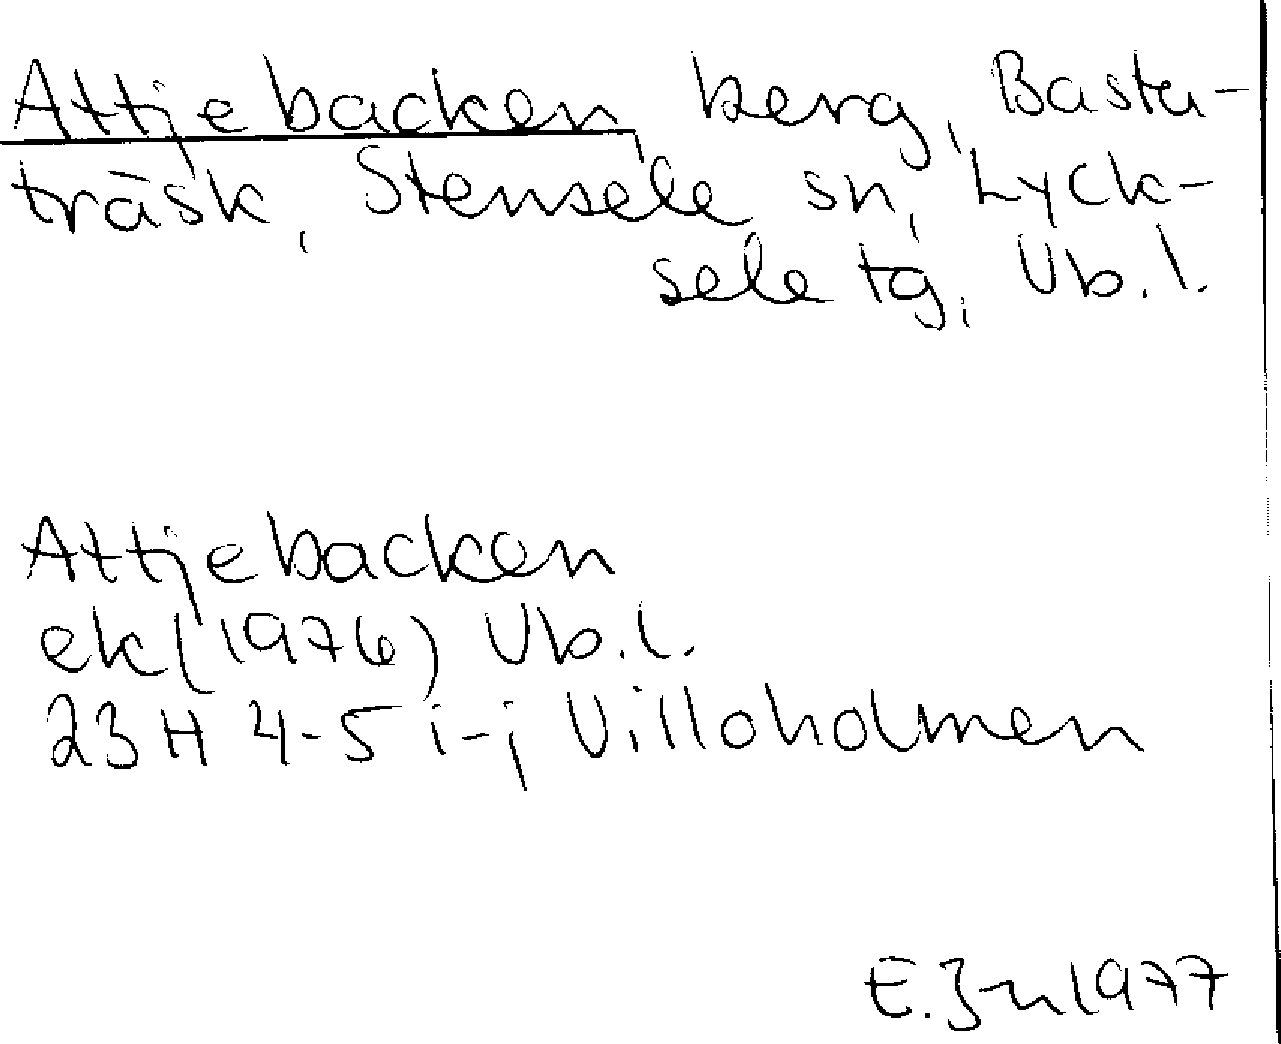 Attjebacken berg, Basta-
träsk, Stensele sn, Lyck-
sele tg, Vb.l.
Attjebacken
ek (1976) Vb.l.
23 H 4-5 i-j Villoholmen
E. 1977